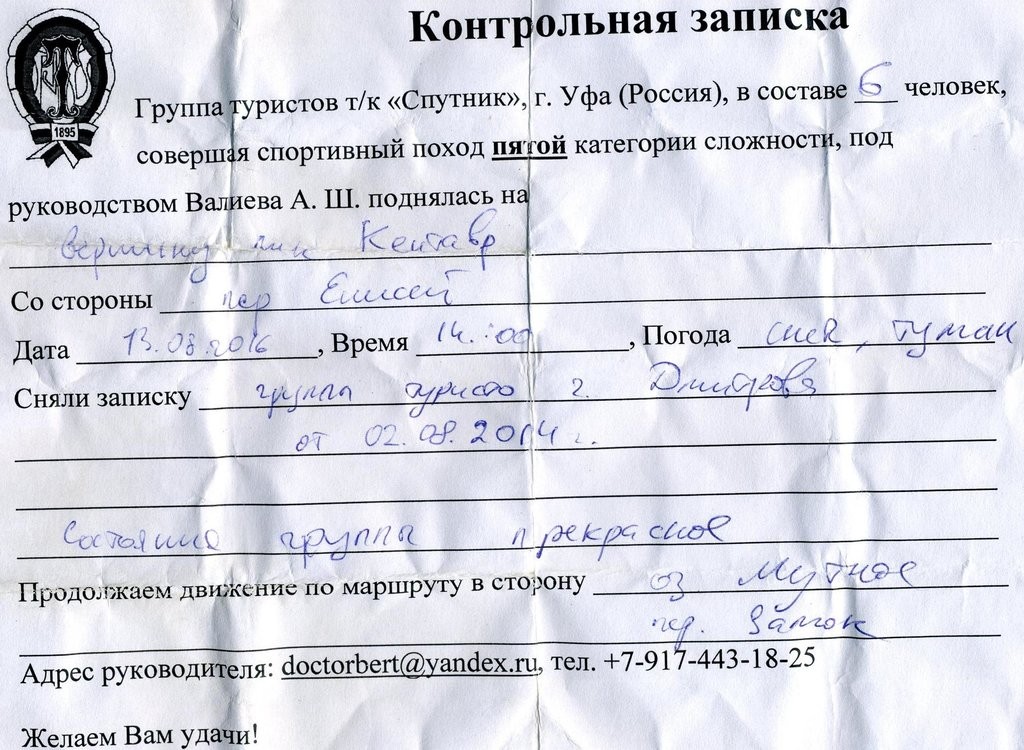 Контрольная записка
1895
Группа туристов т/к «Спутник», г. Уфа (Россия), в составе 6 человек,
совершая спортивный поход пятой категории сложности, под
руководством Валиева А. Ш. поднялась на
вершину пик Кентавр
Со стороны пер Енисей
Дата 13.08.2016, Время 14:00, Погода снег, туман
Сняли записку группы туристо г. Дмитрова
от 02.08.2014 г.
Состояние группы прекрасное
Продолжаем движение по маршруту в сторону оз Мутное
пер. Замок
Адрес руководителя: doctorbert@yandex.ru, тел. +7-917-443-18-25
Желаем Вам удачи!